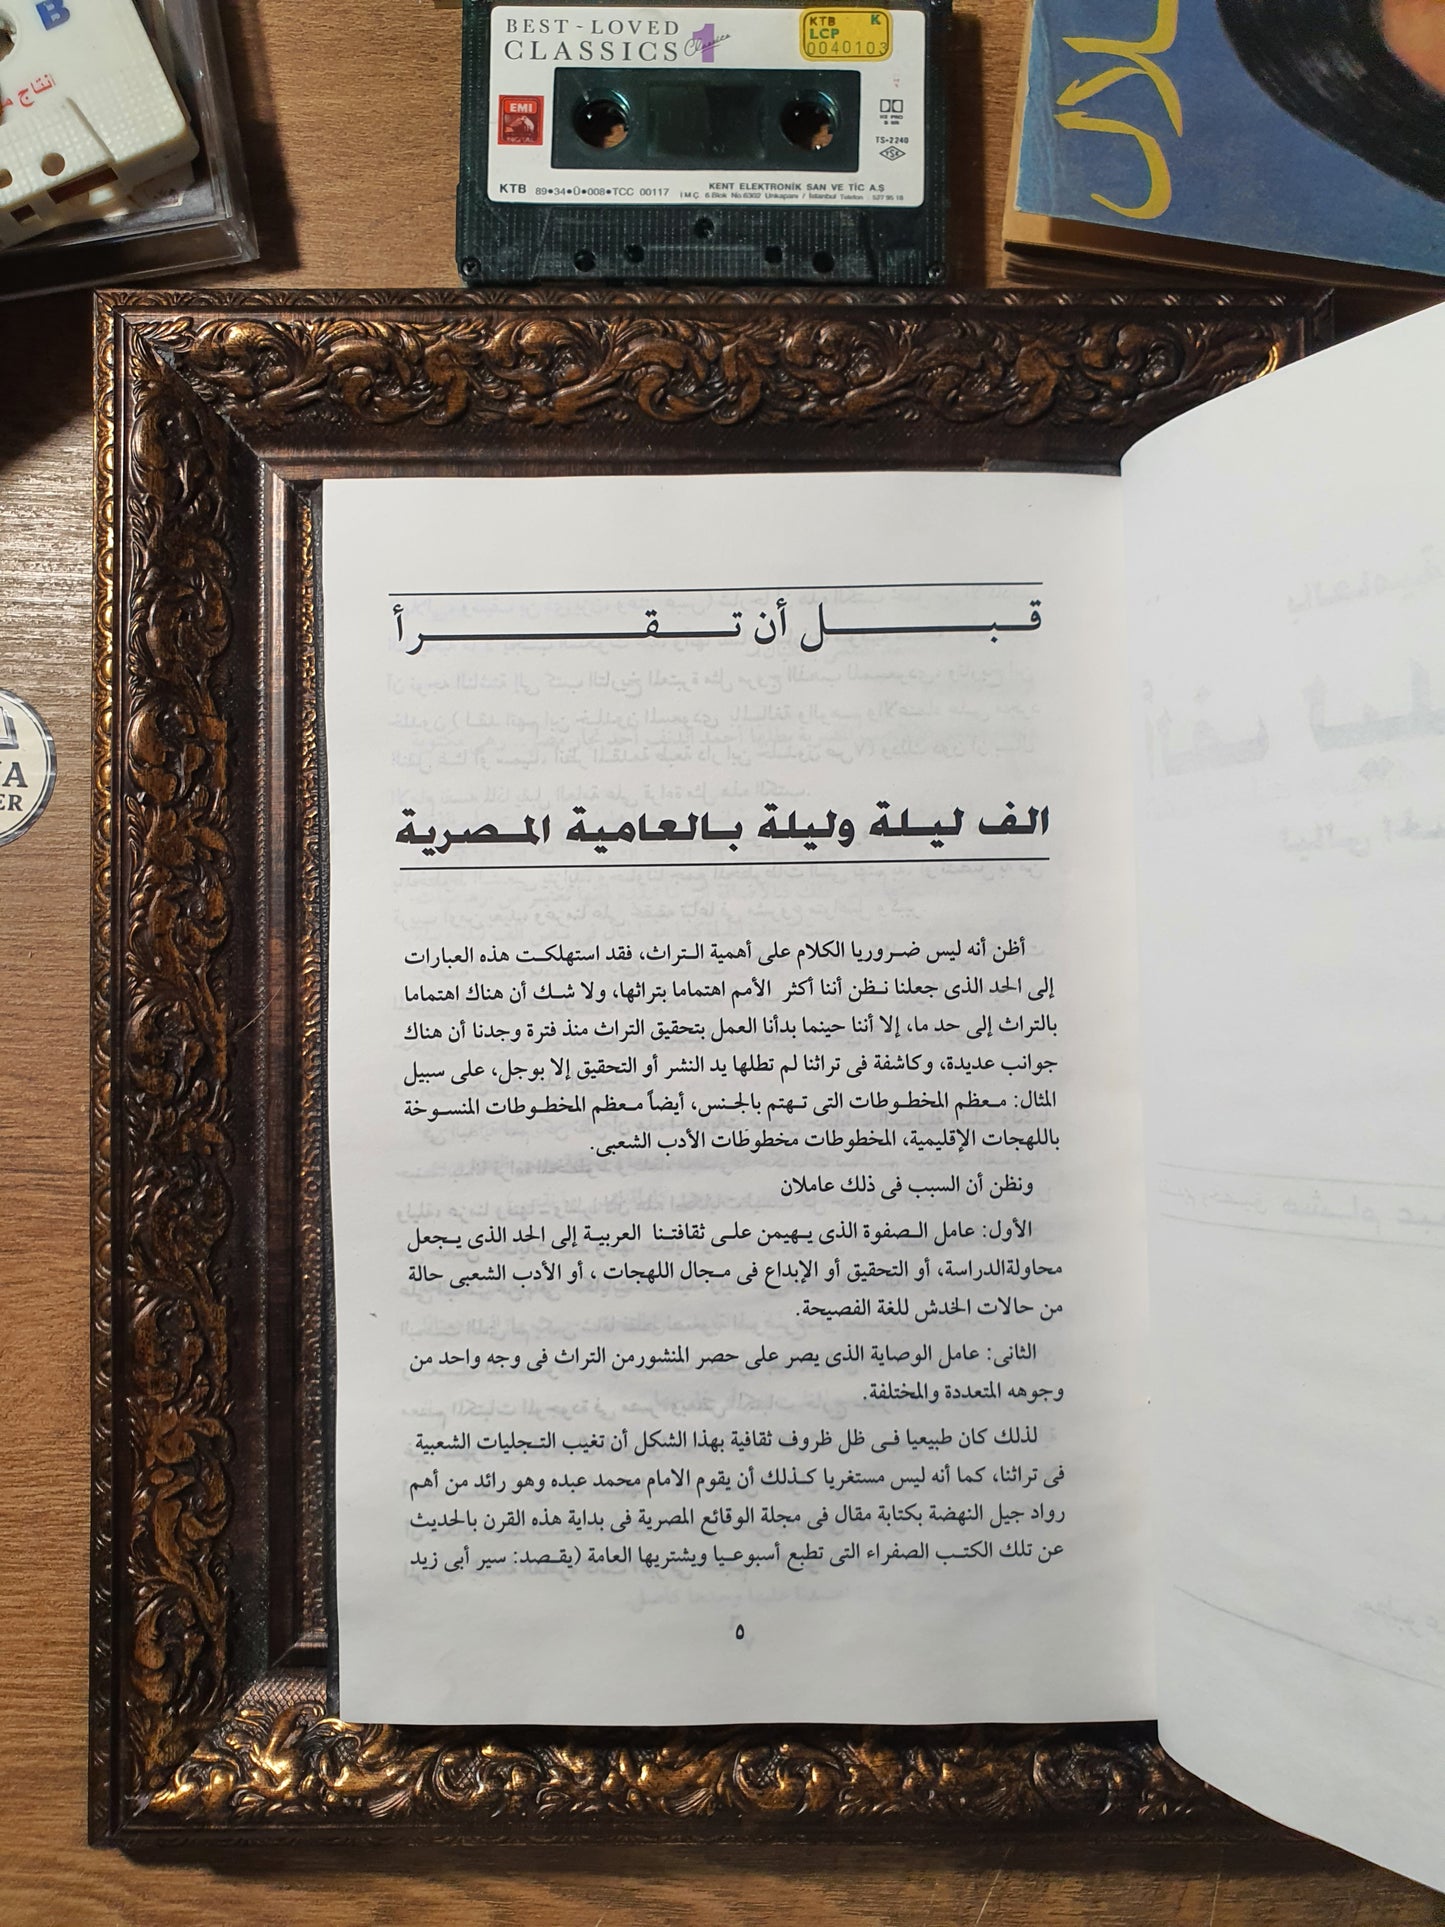 B
أنتاج
BEST-LOVED
CLASSICS 1
Classics
KTB K
LCP
0040103
EMI
TS-2240
TSE
KTB 89•34•Ü•008•TCC 00117
KENT ELEKTRONİK SAN VE TİC A.Ş
İ.M.Ç. 6.Blok No.6302 Unkapanı / İstanbul Telefon : 527 95 18
قبل أن تقرأ
الف ليلة وليلة بالعامية المصرية
أظن أنه ليس ضروريا الكلام على أهمية التراث، فقد استهلكت هذه العبارات
إلى الحد الذى جعلنا نظن أننا أكثر الأمم اهتماما بتراثها، ولا شك أن هناك اهتماما
بالتراث إلى حد ما، إلا أننا حينما بدأنا العمل بتحقيق التراث منذ فترة وجدنا أن هناك
جوانب عديدة، وكاشفة فى تراثنا لم تطلها يد النشر أو التحقيق إلا بوجل، على سبيل
المثال: معظم المخطوطات التى تهتم بالجنس، أيضاً معظم المخطوطات المنسوخة
باللهجات الإقليمية، المخطوطات مخطوطات الأدب الشعبى.
ونظن أن السبب فى ذلك عاملان
الأول: عامل الصفوة الذى يهيمن على ثقافتنا العربية إلى الحد الذى يجعل
محاولةالدراسة، أو التحقيق أو الإبداع فى مجال اللهجات ، أو الأدب الشعبى حالة
من حالات الخدش للغة الفصيحة.
الثانى: عامل الوصاية الذى يصر على حصر المنشورمن التراث فى وجه واحد من
وجوهه المتعددة والمختلفة.
لذلك كان طبيعيا فى ظل ظروف ثقافية بهذا الشكل أن تغيب التجليات الشعبية
فى تراثنا، كما أنه ليس مستغربا كذلك أن يقوم الامام محمد عبده وهو رائد من أهم
رواد جيل النهضة بكتابة مقال فى مجلة الوقائع المصرية فى بداية هذه القرن بالحديث
عن تلك الكتب الصفراء التى تطبع أسبوعيا ويشتريها العامة (يقصد: سير أبى زيد
٥